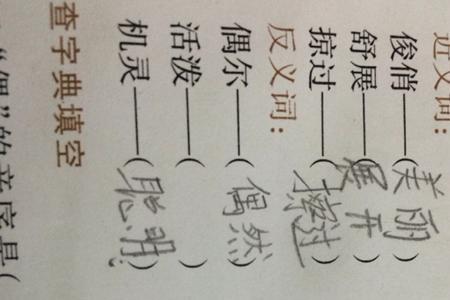 近义词:
俊俏——(美丽)
舒展——(展开)
掠过——(擦过)
反义词:
偶尔——(偶然)
活泼——( )
机灵——(聪明)
查字典填空
“偶”的音序是(